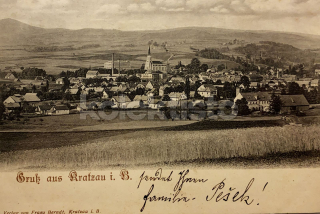 Gruß aus Kratzau i. B.
sendet Ihnen
familie Pešek!
Verlag von Franz Berndt, Kratzau i. B